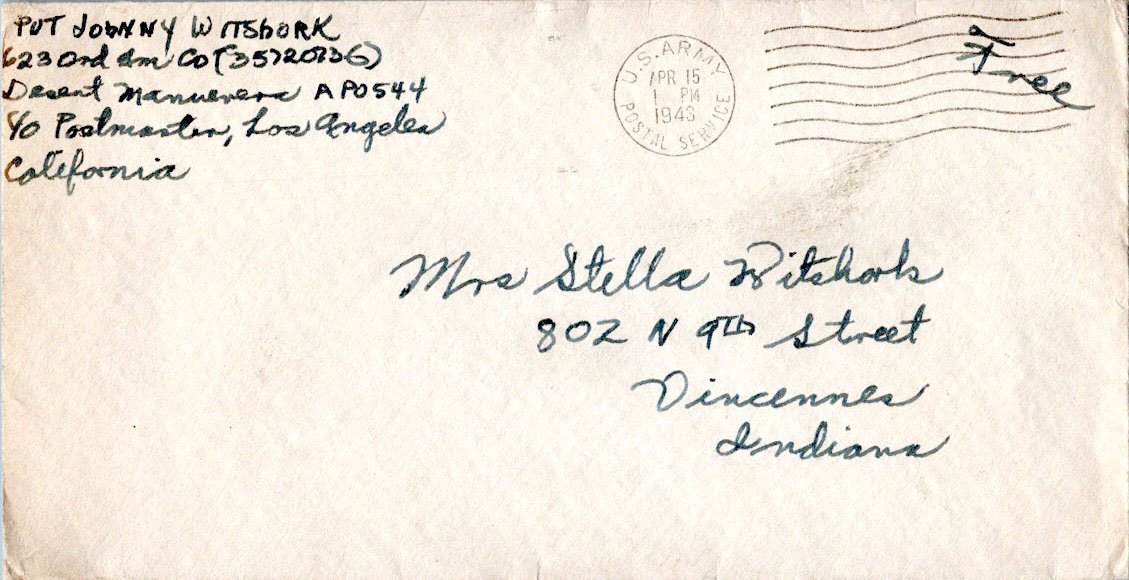 PVT JOHNNY WITSHORK
623 Ord Am CO (35720736)
Desert Manuevers APO 544
c/o Postmaster, Los Angeles
California
U.S. ARMY
APR 15
1 PM
1943
POSTAL SERVICE
Free
Mrs Stella Witshork
802 N 9TH Street
Vincennes
Indiana